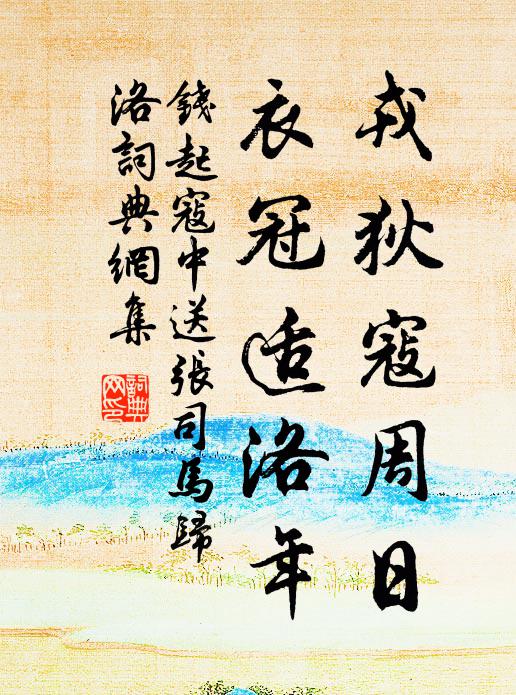 戎狄寇周日
衣冠适洛年
錢起寇中送張司馬歸
洛詞典網集
詞典
网印